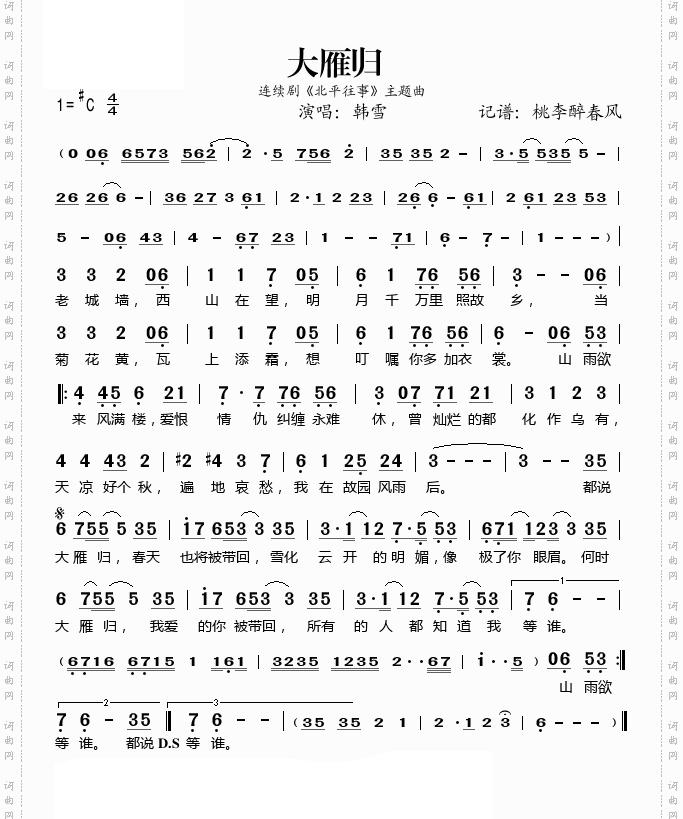 大雁归
连续剧《北平往事》主题曲
1=#C 4/4
演唱：韩雪 记谱：桃李醉春风
（0 06 6573 562 | 2 · 5 756 2 | 35 35 2 – | 3·5 535 5 – |
26 26 6 – | 36 27 3 61 | 2·1 2 23 | 26 6 – 61 | 2 61 23 53 |
5 – 06 43 | 4 – 67 23 | 1 – – 71 | 6 – 7 – | 1 – – – ）|
3 3 2 06 | 1 1 7 05 | 6 1 76 56 | 3 – – 06 |
老 城 墙，西 山 在 望，明 月 千 万里 照故 乡， 当
3 3 2 06 | 1 1 7 05 | 6 1 76 56 | 6 – 06 53 |
菊 花 黄，瓦 上 添 霜，想 叮 嘱 你多 加衣 裳。 山 雨欲
‖: 4 45 6 21 | 7 · 7 76 56 | 3 07 71 21 | 3 1 2 3 |
来 风满 楼，爱恨 情 仇 纠缠 永难 休，曾 灿烂 的都 化 作 乌 有，
4 4 43 2 | #2 #4 3 7 | 6 1 25 24 | 3 – – – | 3 – – 35 |
天 凉 好个 秋， 遍 地 哀 愁，我 在 故园 风雨 后。 都说
𝄋
6 755 5 35 | i7 653 3 35 | 3·1 12 7·5 53 | 671 123 3 35 |
大 雁 归，春天 也将被带回，雪化 云 开 的 明 媚，像 极了你 眼眉。何时
1
6 755 5 35 | i7 653 3 35 | 3·1 12 7·5 53 | 7 6 – – |
大 雁 归， 我爱 的你 被带回， 所有 的 人 都 知 道 我 等 谁。
（6716 6715 1 161 | 3235 1235 2··67 | i··5 ）06 53 :‖
山 雨欲
2 3
7 6 – 35 ‖ 7 6 – – |（35 35 2 1 | 2 ·1 2 3 | 6 – – – ）‖
等 谁。 都说 D.S 等 谁。
词曲网
词曲网
词曲网
词曲网
词曲网
词曲网
词曲网
词曲网
词曲网
词曲网
词曲网
词曲网
词曲网
词曲网